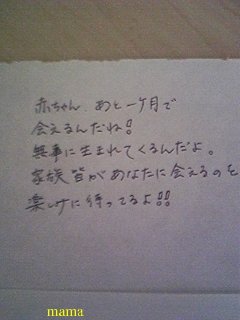 赤ちゃん、あと一ヶ月で
会えるんだね!
無事に生まれてくるんだよ。
家族皆があなたに会えるのを
楽しみに待ってるよ!!
mama